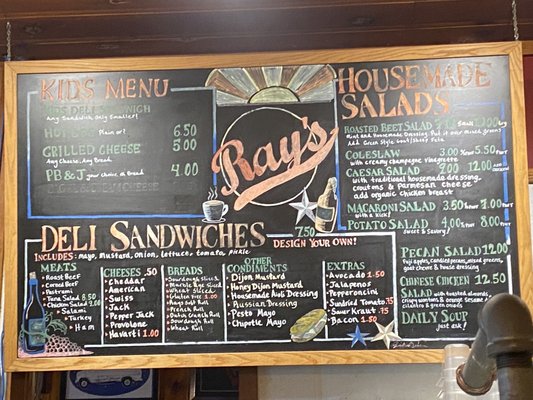 KIDS MENU
KIDS DELI SANDWICH
Any Sandwich Only Smaller!
HOT DOG Plain or? 6.50
GRILLED CHEESE 5.00
Any Cheese, Any Bread
PB & J your choice of Bread 4.00
Ray's
HOUSEMADE
SALADS
ROASTED BEET SALAD
Mint and Housemade Dressing Put it over mixed greens
COLESLAW 3.00 5.50
with creamy champagne vinagrette
CAESAR SALAD 9.00 12.00
with traditional housemade dressing,
croutons & parmesan cheese
add organic chicken breast
MACARONI SALAD 3.50 7.00
with a kick!
POTATO SALAD 4.00 8.00
Sweet & Savory
PECAN SALAD 12.00
goat cheese & house dressing
CHINESE CHICKEN 12.50
SALAD with toasted almonds,
crispy wontons & orange sesame
cilantro & green onions
DAILY SOUP
Just ask!
DELI SANDWICHES 7.50
DESIGN YOUR OWN!
INCLUDES: mayo, mustard, onion, lettuce, tomato, pickle
MEATS
Roast Beef
Corned Beef
Pastrami
Tuna Salad 8.50
Chicken Salad 2.00
Salami
Turkey
Ham
CHEESES .50
Cheddar
American
Swiss
Jack
Pepper Jack
Provolone
Havarti 1.00
BREADS
Sourdough Sliced
Marble Rye Sliced
Wheat Sliced
Gluten Free
French Roll
Dutch Crunch Roll
Sourdough Roll
Wheat Roll
OTHER
CONDIMENTS
Dijon Mustard
Honey Dijon Mustard
Housemade Aujus Dressing
Russian Dressing
Pesto Mayo
Chipotle Mayo
EXTRAS
Avocado 1.50
Jalapenos
Pepperoncini
Sundried Tomato .75
Sauer Kraut 1.50
Bacon 1.50